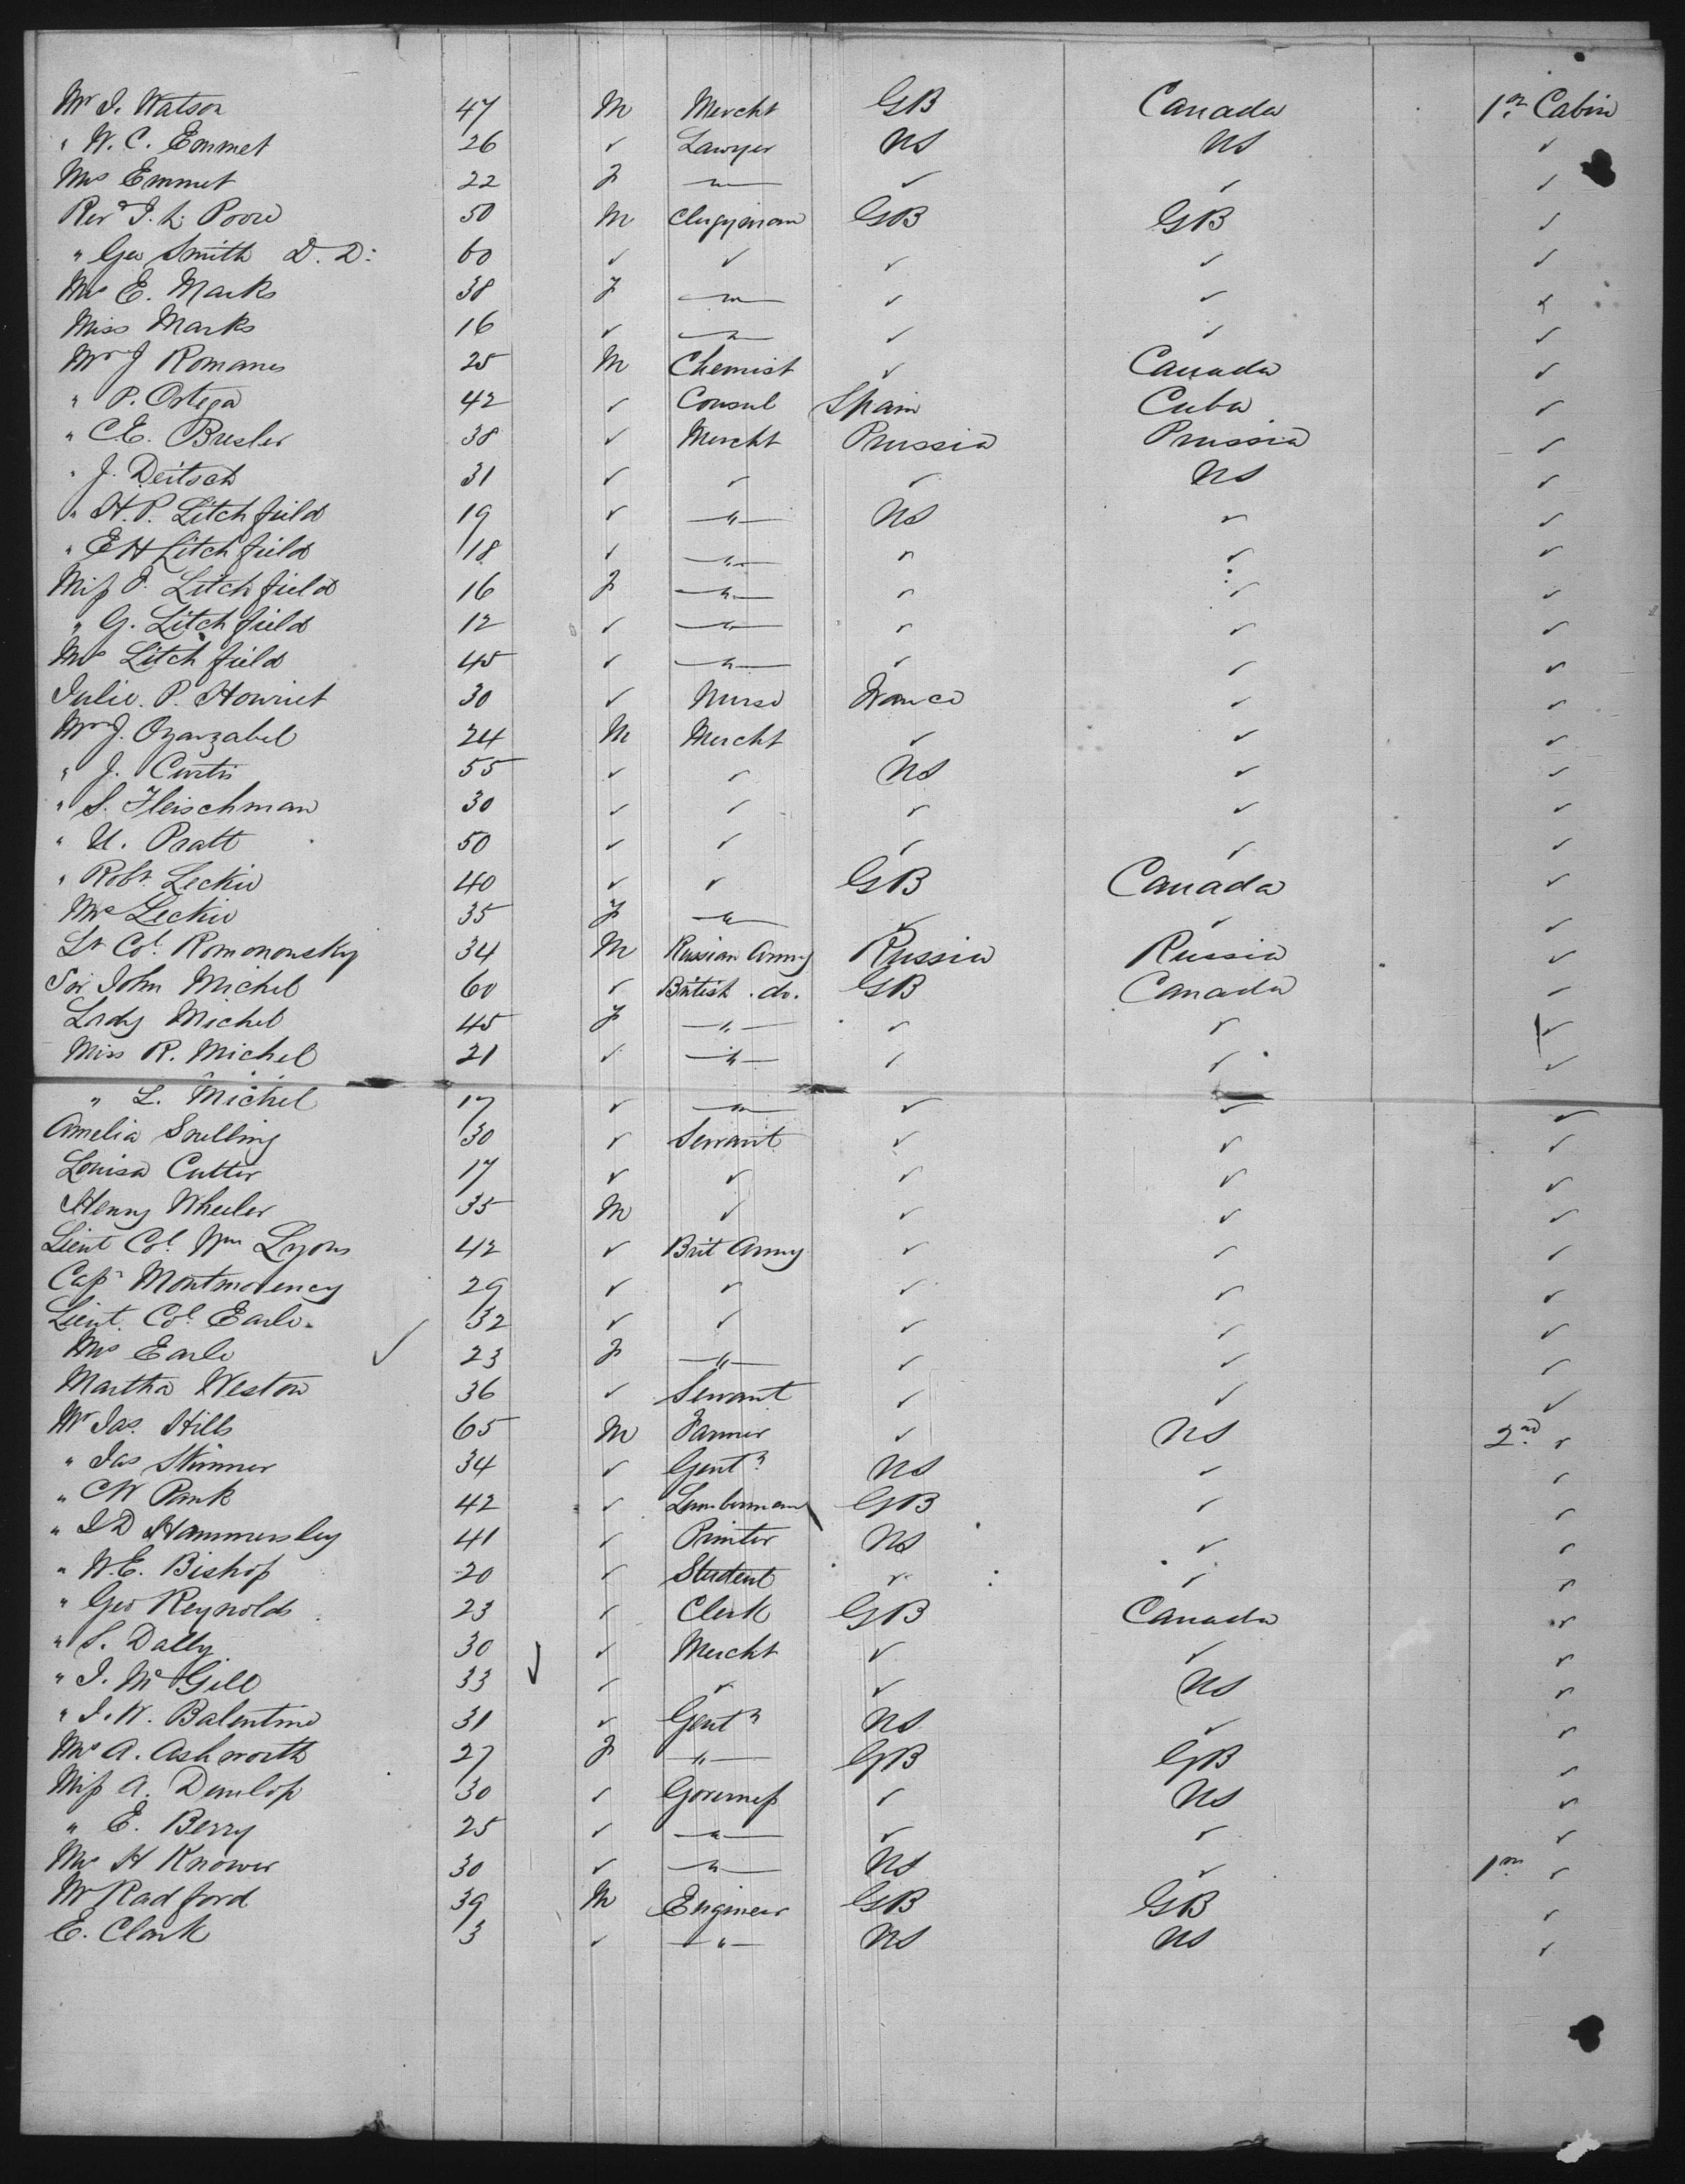 Mr J. Watson 47 M Mercht GB Canada 1st Cabin
" W. C. Emmet 26 ✓ Lawyer US US ✓
Mrs Emmet 22 F —"— ✓ ✓ ✓
Revd J. L. Poore 50 M Clergyman GB GB ✓
" Geo Smith D. D. 60 ✓ ✓ ✓ ✓ ✓
Mrs E. Marks 38 F —"— ✓ ✓ ✓
Miss Marks 16 ✓ —"— ✓ ✓ ✓
Mr J Romanes 25 M Chemist ✓ Canada ✓
" P. Ortega 42 ✓ Consul Spain Cuba ✓
" C.E. Bresler 38 ✓ Mercht Prussia Prussia ✓
" J. Deitsch 31 ✓ ✓ ✓ US ✓
" H. P. Litchfield 19 ✓ —"— US ✓ ✓
" E H Litchfield 18 ✓ —"— ✓ ✓ ✓
Miss J. Litchfield 16 F —"— ✓ ✓ ✓
" G. Litchfield 12 ✓ —"— ✓ ✓ ✓
Mrs Litchfield 45 ✓ —"— ✓ ✓ ✓
Julie. P. Houriet 30 ✓ Nurse France ✓ ✓
Mr J. Oyarzabel 24 M Mercht ✓ ✓ ✓
" J. Curtis 55 ✓ ✓ US ✓ ✓
" S. Fleischman 30 ✓ ✓ ✓ ✓ ✓
" U. Pratt 50 ✓ ✓ ✓ ✓ ✓
" Robt. Leckie 40 ✓ ✓ GB Canada ✓
Mrs Leckie 35 F —"— ✓ ✓ ✓
Lt Col. Romonowsky 34 M Russian Army Russia Russia ✓
Sir John Michel 60 ✓ British . do. GB Canada ✓
Lady Michel 45 F —"— ✓ ✓ ✓
Miss R. Michel 21 ✓ —"— ✓ ✓ ✓
" L. Michel 17 ✓ —"— ✓ ✓ ✓
Amelia Snelling 30 ✓ Servant ✓ ✓ ✓
Louisa Cutter 17 ✓ ✓ ✓ ✓ ✓
Henry Wheeler 35 M ✓ ✓ ✓ ✓
Lieut Col. Wm Lyons 42 ✓ Brit Army ✓ ✓ ✓
Capt Montmorency 29 ✓ ✓ ✓ ✓ ✓
Lieut. Col. Earle 32 ✓ ✓ ✓ ✓ ✓
Mrs Earle ✓ 23 F —"— ✓ ✓ ✓
Martha Weston 36 ✓ Servant ✓ ✓ ✓
Mr Jas. Hills 65 M Farmer ✓ US 2nd ✓
" Jas Skinner 34 ✓ Gentn US ✓ ✓
" C W Pank 42 ✓ Lumberman GB ✓ ✓
" J D Hammersley 41 ✓ Printer US ✓ ✓
" W. E. Bishop 20 ✓ Student ✓ ✓ ✓
" Geo Reynolds 23 ✓ Clerk GB Canada ✓
" S. Dally 30 ✓ Mercht ✓ ✓ ✓
" J. McGill 33 ✓ ✓ ✓ US ✓
" J. W. Balentine 31 ✓ Gentn US ✓ ✓
Mrs A. Ashworth 27 F —"— GB GB ✓
Miss A. Dunlop 30 ✓ Governess ✓ US ✓
" E. Berry 25 ✓ —"— ✓ ✓ ✓
Mrs H Knower 30 ✓ —"— US ✓ 1st ✓
Mr Radford 39 M Engineer GB GB ✓
E. Clark 3 ✓ —"— US US ✓